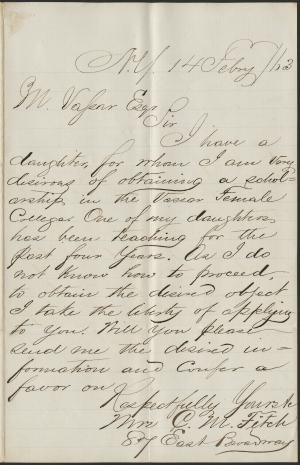 N.Y. 14 Febry /63
M. Vassar Esqr
Sir
I have a
daughter, for whom I am very
desirous of obtaining a schol-
arship, in the Vassar Female
College. One of my daughters
has been teaching for the
past four years. As I do
not know how to proceed,
to obtain the desired object
I take the liberty of applying
to you. Will you please
send me the desired in-
formation and confer a
favor on
Respectfully Yours &c
Mrs C. M. Fitch
87 East Broadway